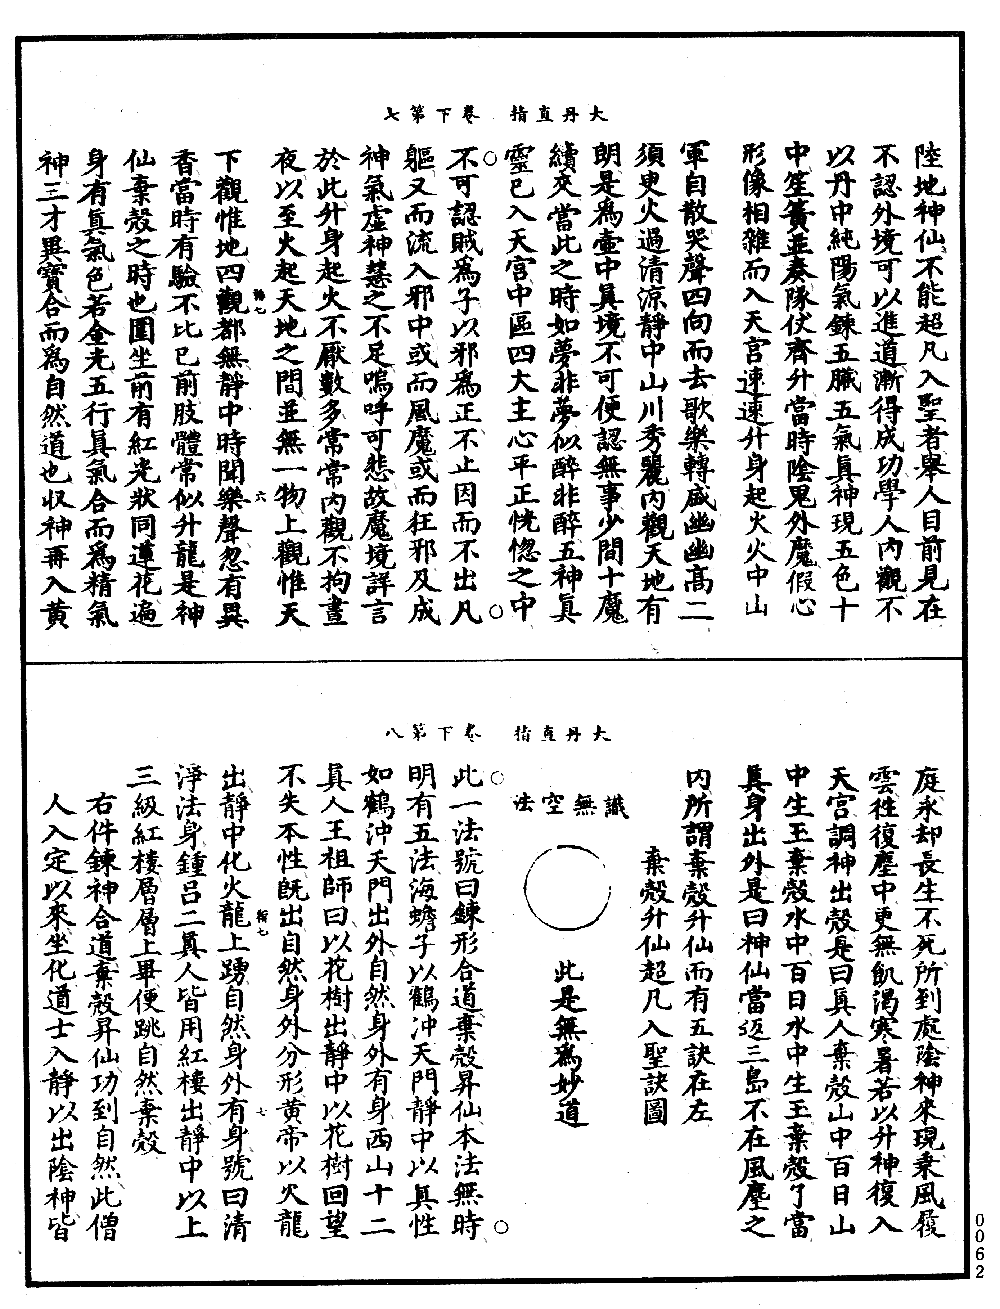 大丹直指　卷下第七
陸地神仙不能超凡入聖者舉人目前見在
不認外境可以進道漸得成功學人內觀不
以丹中純陽氣鍊五臟五氣真神現五色十
中笙簧並奏隊仗齊升當時陰鬼外魔假心
形像相雜而入天宮速速升身起火火中山
軍自散哭聲四向而去歌樂轉盛幽幽高二
須臾火過清涼靜中山川秀麗內觀天地有
朗是為壺中真境不可便認無事少間十魔
續交當此之時如夢非夢似醉非醉五神真
靈已入天宮中區四大主心平正恍惚之中
不可認賊為子以邪為正不止因而不出凡
軀又而流入邪中或而風魔或而狂邪及成
神氣虛神慧之不足嗚呼可悲故魔境詳言
於此升身起火不厭數多常常內觀不拘晝
夜以至火起天地之間並無一物上觀惟天
六
下觀惟地四觀都無靜中時聞樂聲忽有異
香當時有驗不比已前肢體常似升龍是神
仙棄殼之時也圓坐前有紅光狀同蓮花遍
身有真氣色若金光五行真氣合而為精氣
神三才異寶合而為自然道也収神再入黃
大丹直指　卷下第八
庭永却長生不死所到處陰神來現乘風履
雲徃復塵中更無飢渴寒暑若以升神復入
天宮調神出殼是曰真人棄殼山中百日山
中生玉棄殼水中百日水中生玉棄殼了當
真身出外是曰神仙當返三島不在風塵之
內所謂棄殼升仙而有五訣在左
棄殼升仙超凡入聖訣圖
識無空法
此是無為妙道
此一法號曰鍊形合道棄殼昇仙本法無時
明有五法海蟾子以鶴冲天門靜中以真性
如鶴沖天門出外自然身外有身西山十二
真人王祖師曰以花樹出靜中以花樹回望
不失本性既出自然身外分形黃帝以火龍
七
出靜中化火龍上踴自然身外有身號曰清
淨法身鍾呂二真人皆用紅樓出靜中以上
三級紅樓層層上畢便跳自然棄殼
右件鍊神合道棄殼昇仙功到自然此僧
人入定以來坐化道士入靜以出陰神皆
0062